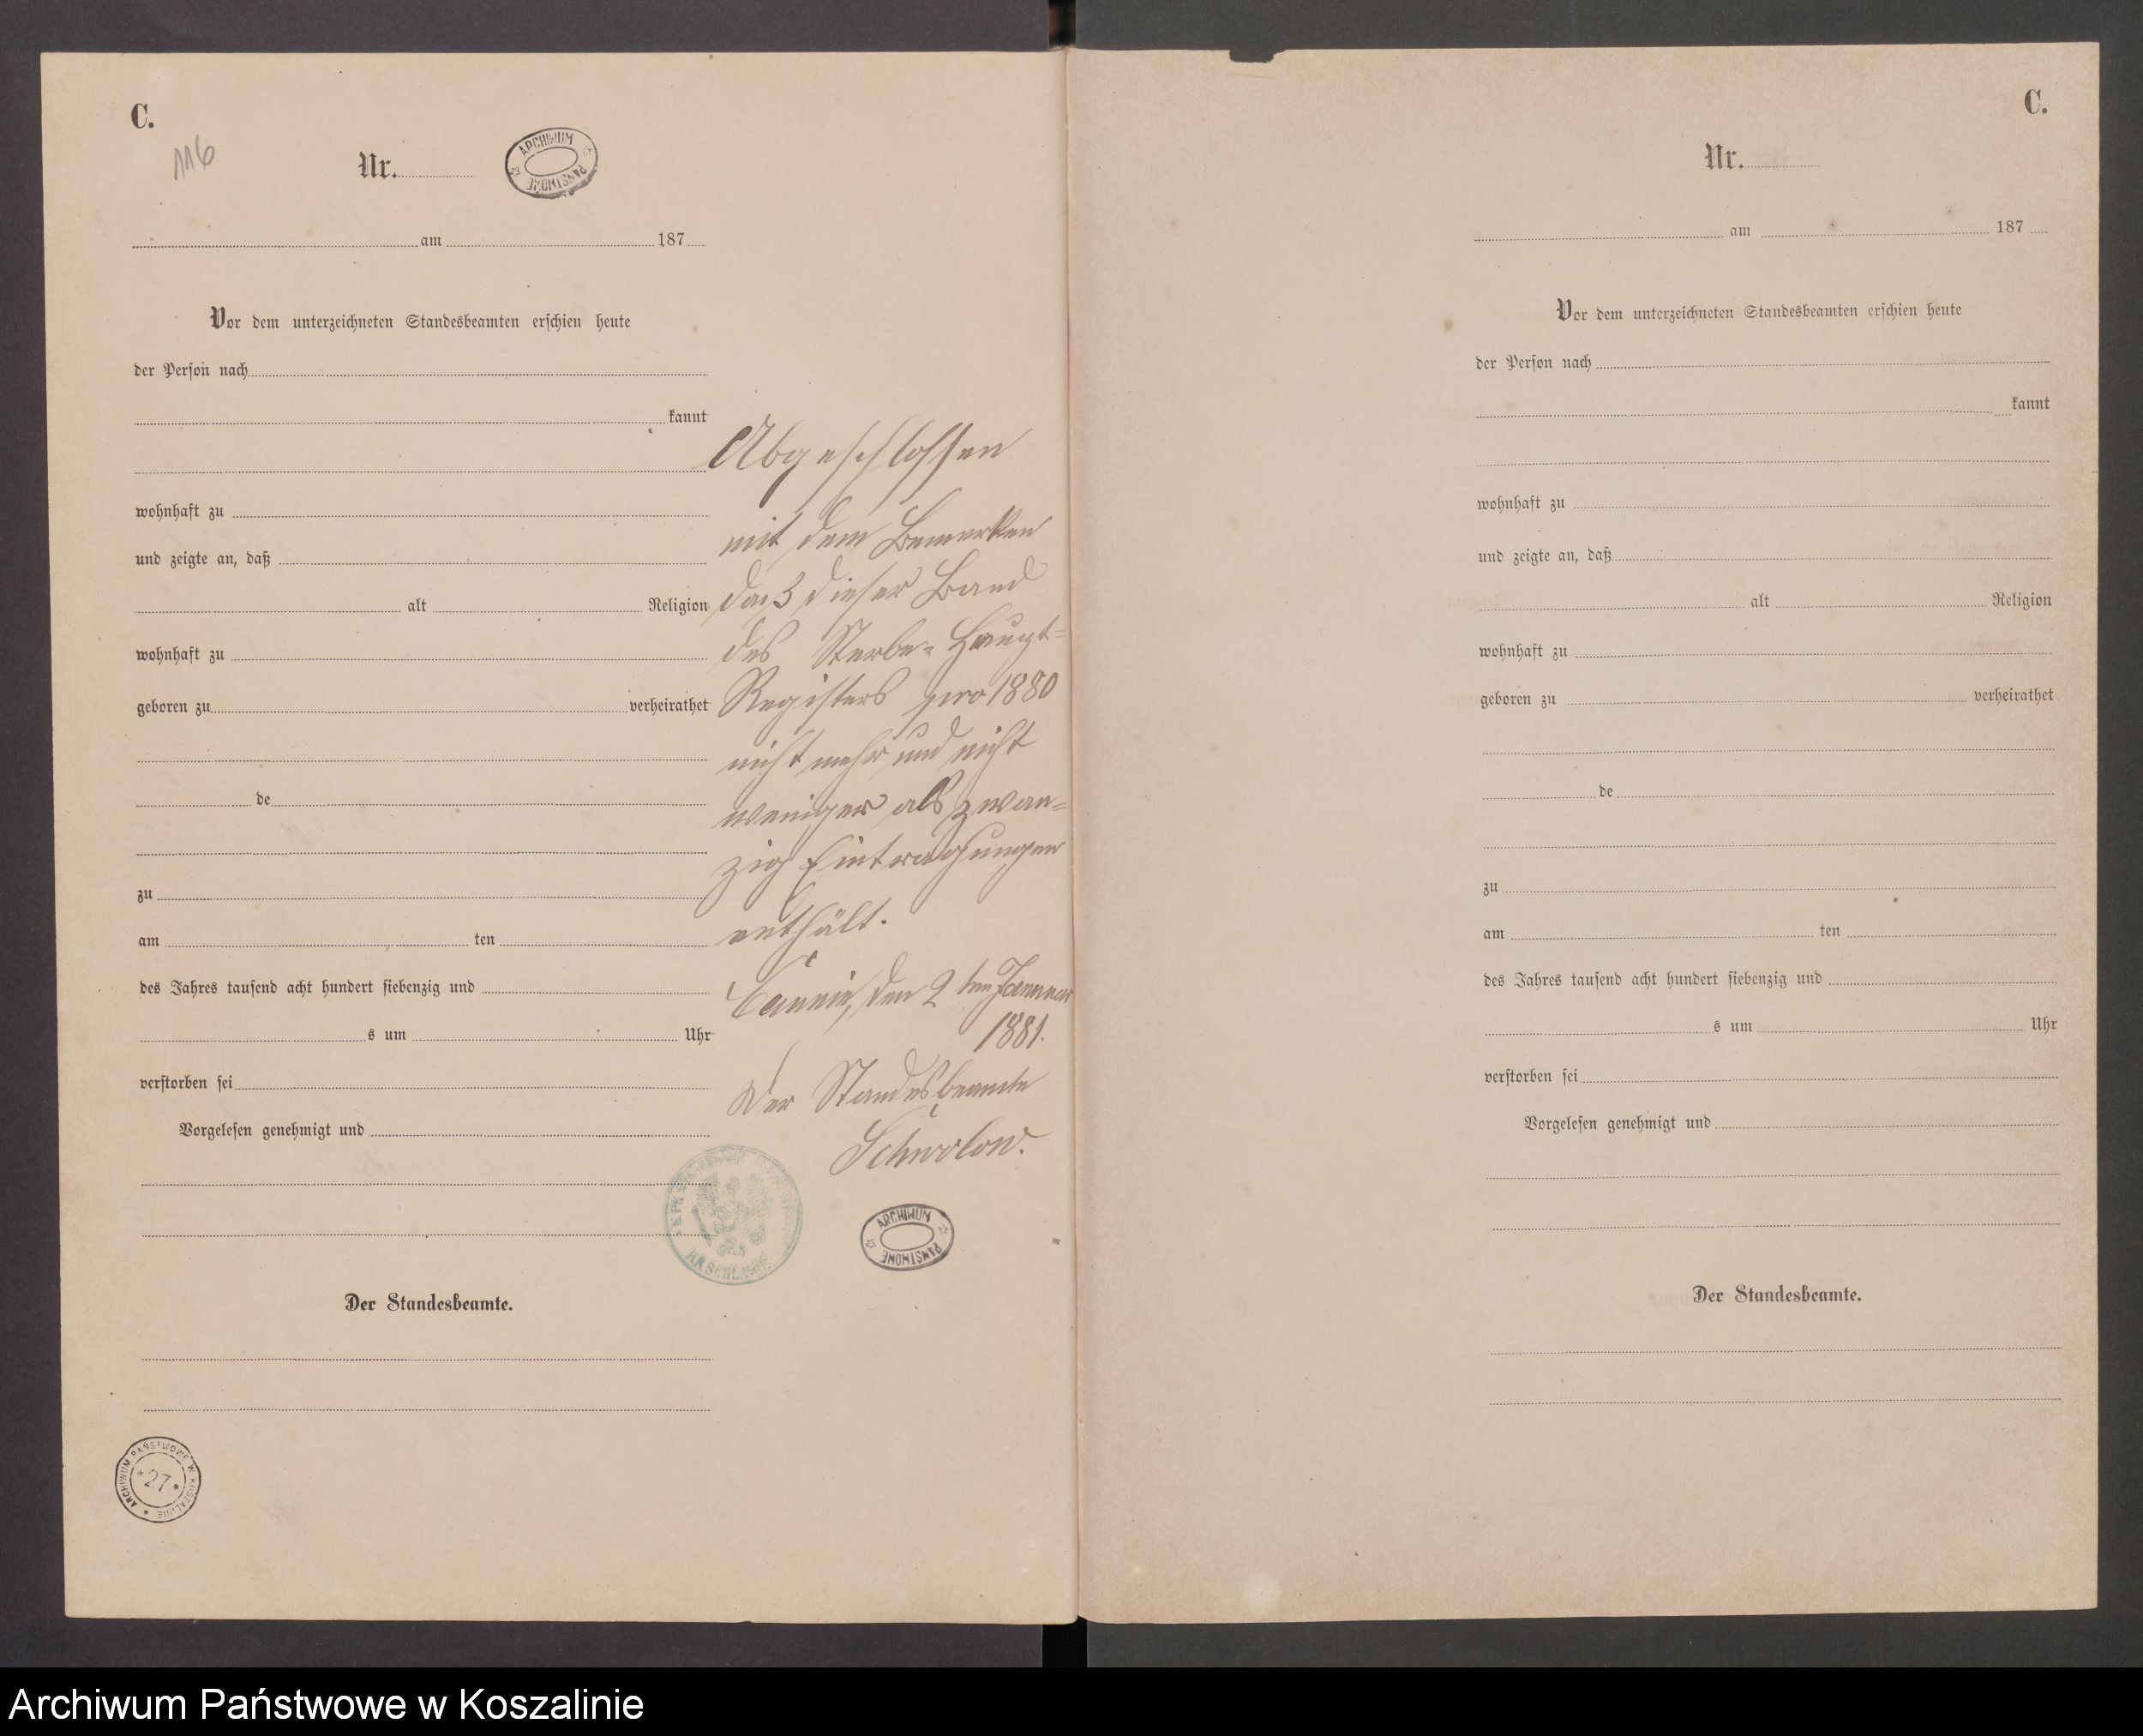 C.
116
Nr.
ARCHIWUM PAŃSTWOWE
am 187
Vor dem unterzeichneten Standesbeamten erschien heute
der Person nach
kannt
wohnhaft zu
und zeigte an, daß
alt Religion
wohnhaft zu
geboren zu verheirathet
de
zu
am ten
des Jahres tausend acht hundert siebenzig und
s um Uhr
verstorben sei
Vorgelesen genehmigt und
Der Standesbeamte.
ARCHIWUM PAŃSTWOWE W KOSZALINIE
27
Abgeschlossen
mit dem Bemerken
daß dieser Band
des Sterbe-Haupt-
Registers pro 1880
nicht mehr und nicht
weniger als zwan-
zig Eintragungen
enthält.
den 2ten Januar
1881.
Der Standesbeamte
Schwolow.
ARCHIWUM PAŃSTWOWE
C.
Nr.
am 187
Vor dem unterzeichneten Standesbeamten erschien heute
der Person nach
kannt
wohnhaft zu
und zeigte an, daß
alt Religion
wohnhaft zu
geboren zu verheirathet
de
zu
am ten
des Jahres tausend acht hundert siebenzig und
s um Uhr
verstorben sei
Vorgelesen genehmigt und
Der Standesbeamte.
Archiwum Państwowe w Koszalinie